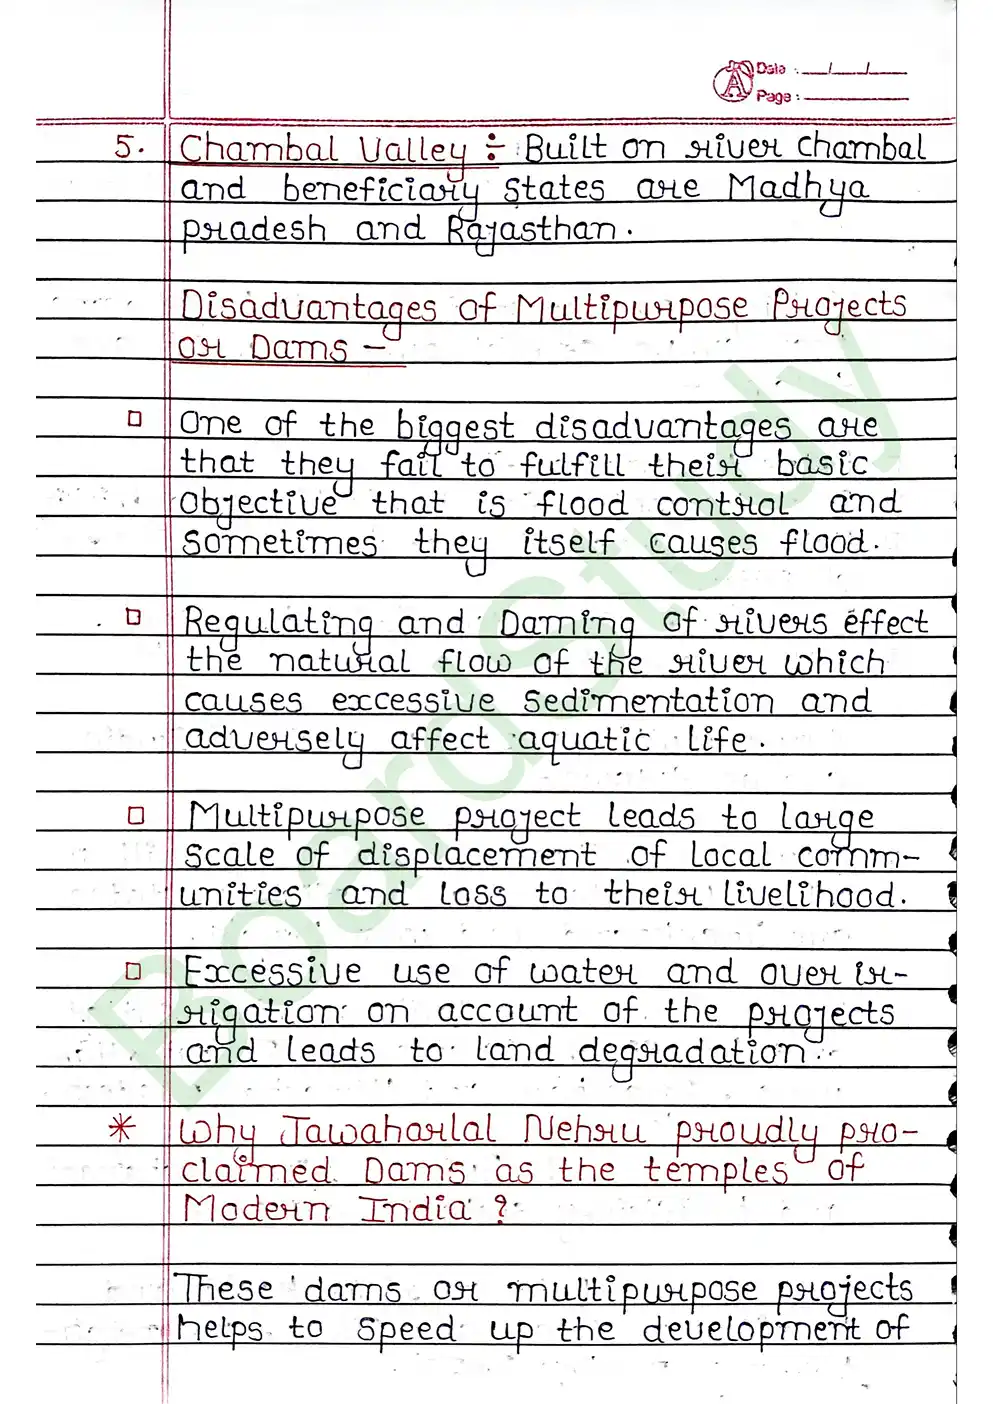 Date : __/__/__
Page : ______
5. Chambal Valley ÷ Built on river chambal
and beneficiary states are Madhya
pradesh and Rajasthan.
Disadvantages of Multipurpose Projects
or Dams –
□ One of the biggest disadvantages are
that they fail to fulfill their basic
objective that is flood control and
sometimes they itself causes flood.
□ Regulating and Daming of rivers effect
the natural flow of the river which
causes excessive sedimentation and
adversely affect aquatic life.
□ Multipurpose project leads to large
scale of displacement of local comm-
unities and loss to their livelihood.
□ Excessive use of water and over ir-
rigation on account of the projects
and leads to land degradation.
* Why Jawaharlal Nehru proudly pro-
claimed Dams as the temples of
Modern India ?
These dams or multipurpose projects
helps to speed up the development of
BoardStudy